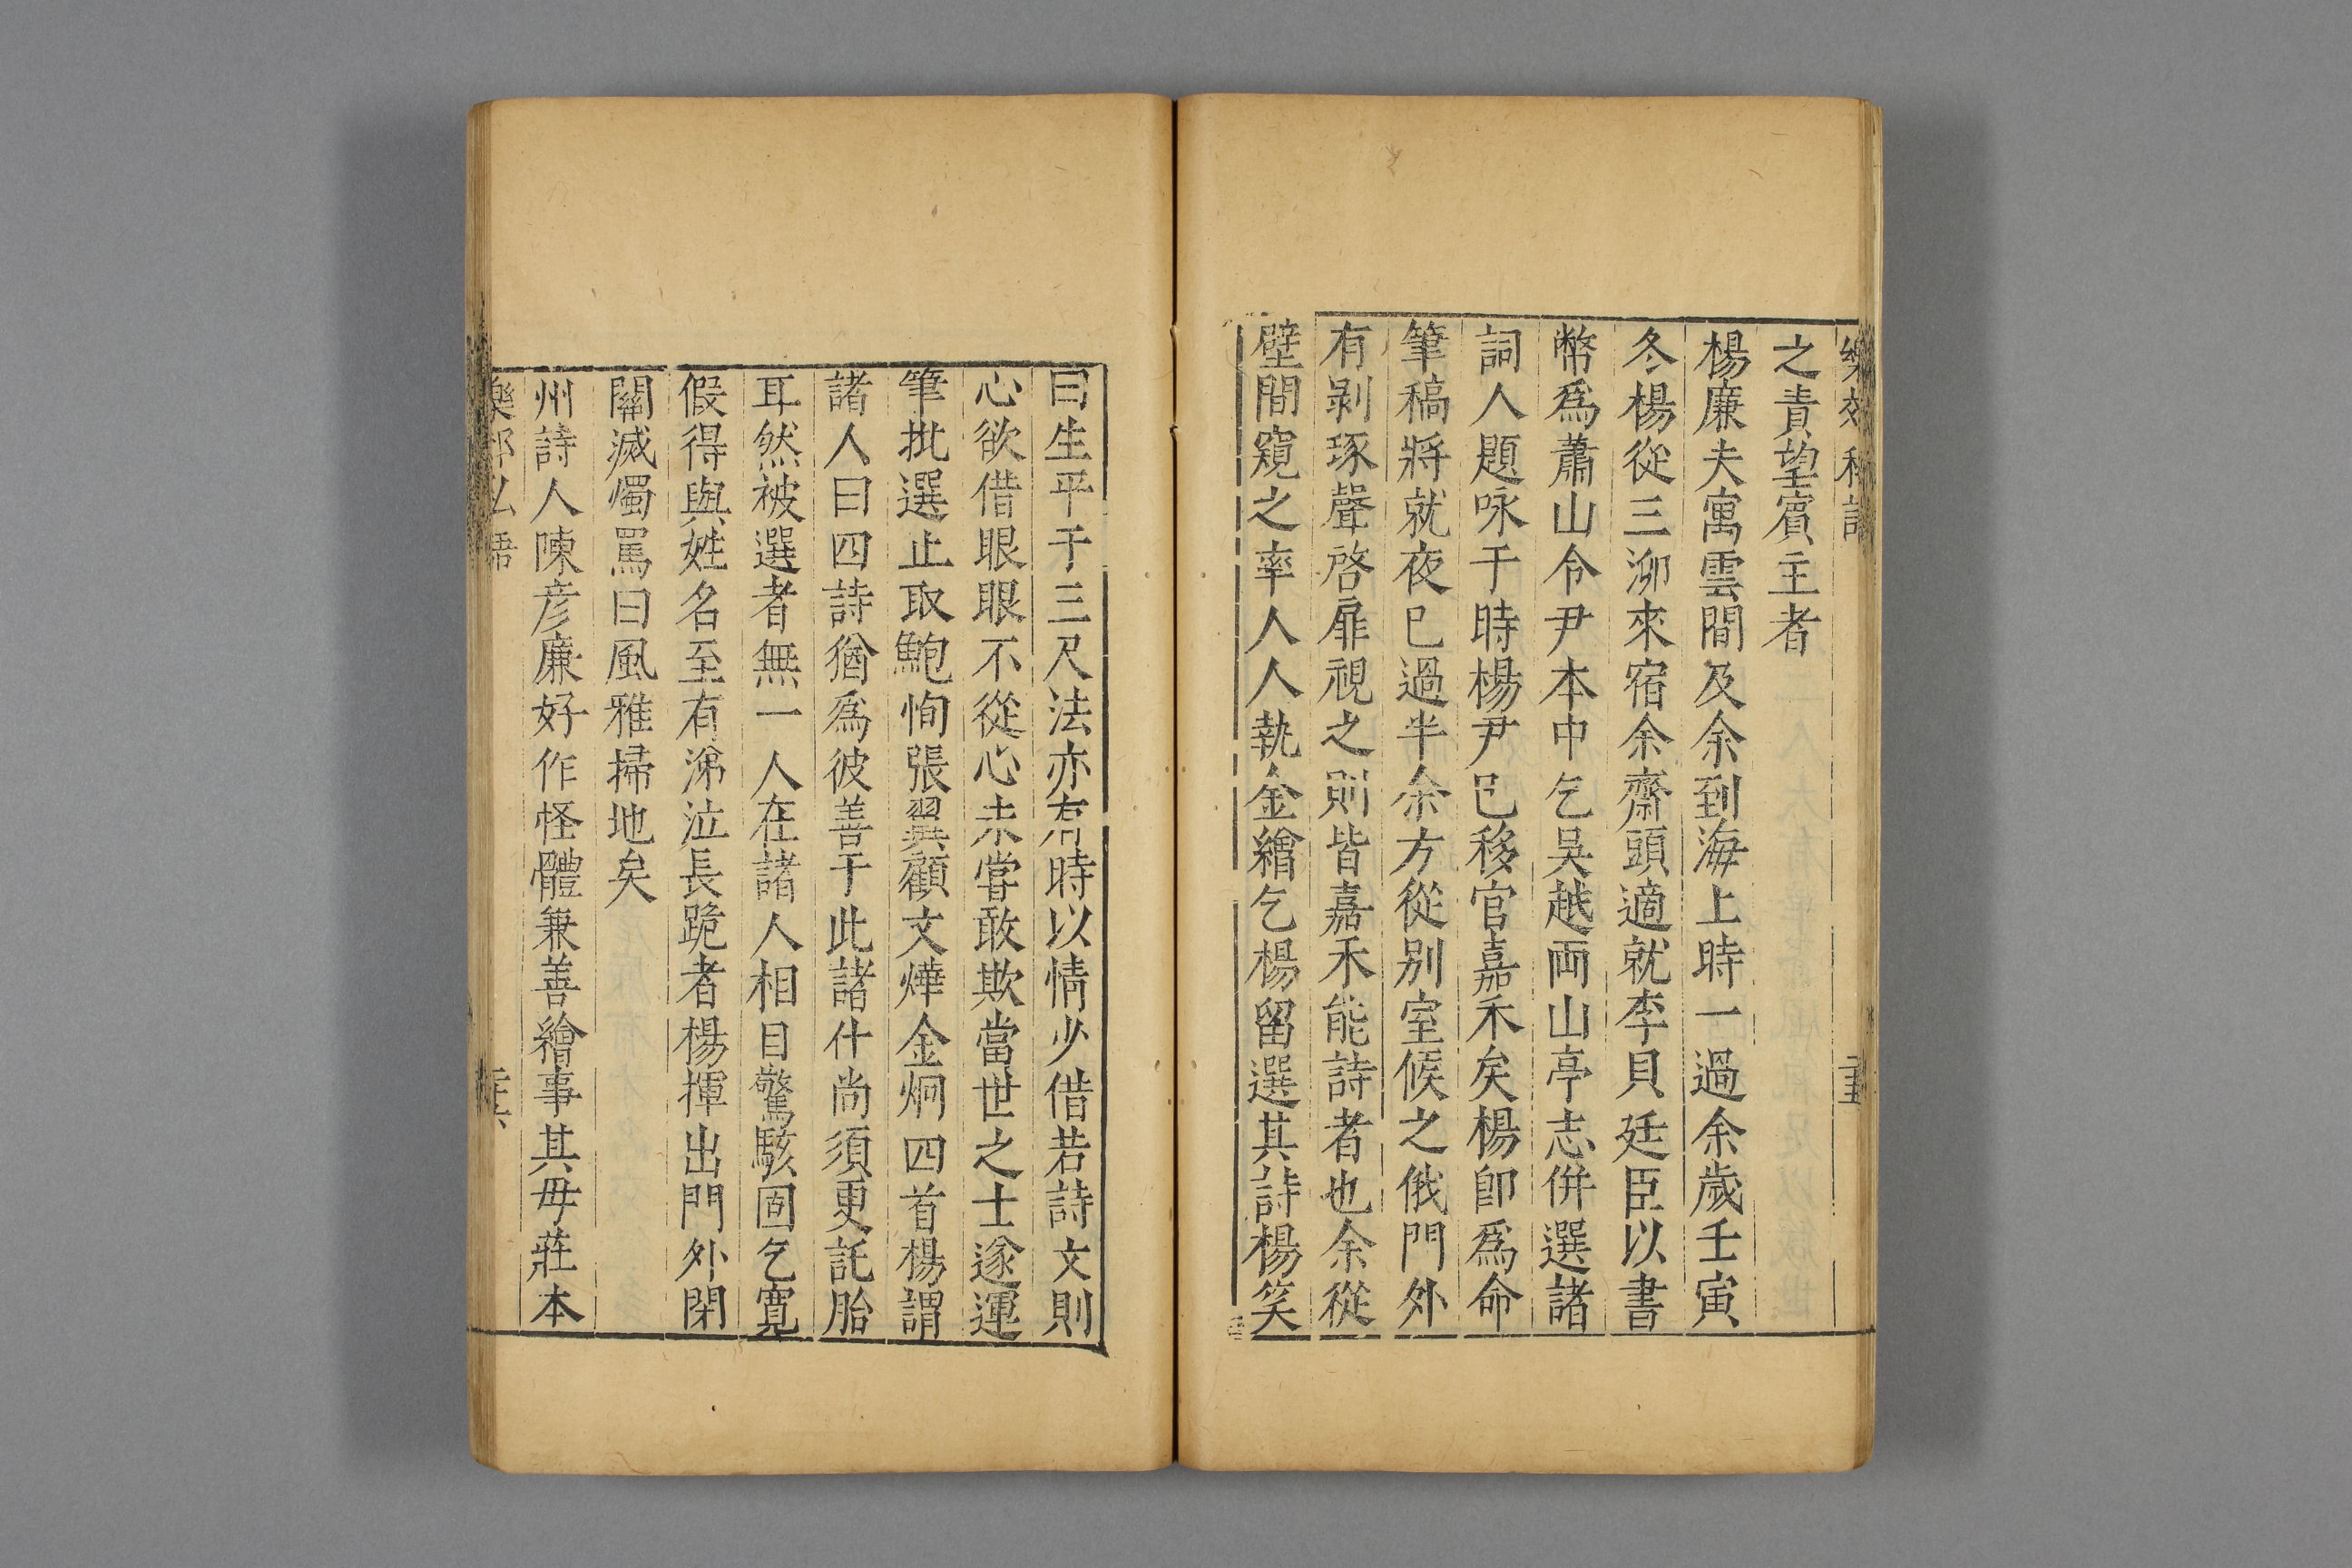 樂郊私語
之責望賓主者
楊廉夫寓雲間及余到海上時一過余歲壬寅
冬楊從三泖來宿余齋頭適就李貝廷臣以書
幣爲蕭山令尹本中乞吳越両山亭志併選諸
詞人題咏于時楊尹已移官嘉禾矣楊卽爲命
筆稿將就夜已過半余方從別室候之俄門外
有剥琢聲啓扉視之則皆嘉禾能詩者也余從
壁間窺之率人人執金繒乞楊留選其詩楊笑
曰生平于三尺法亦有時以情少借若詩文則
心欲借眼眼不從心未嘗敢欺當世之士遂運
筆批選止取鮑恂張翼顧文煒金炯四首楊謂
諸人曰四詩猶爲彼善于此諸什尚須更託胎
耳然被選者無一人在諸人相目驚駭固乞寬
假得與姓名至有涕泣長跪者楊揮出門外閉
關滅燭罵曰風雅掃地矣
州詩人陳彦廉好作怪體兼善繪事其毋莊本
樂郊私語